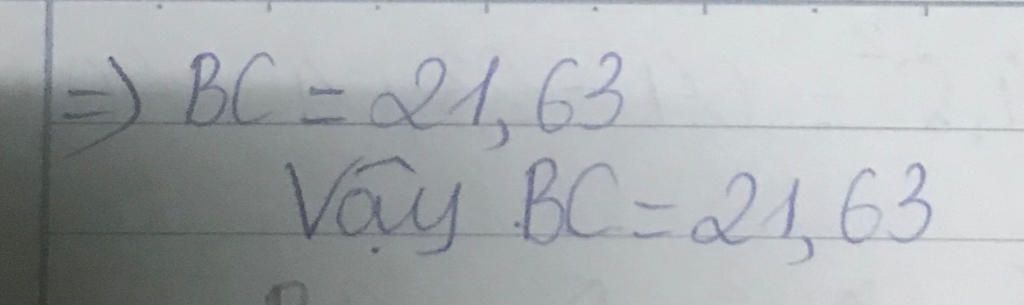 => BC = 21,63
Vậy BC = 21,63